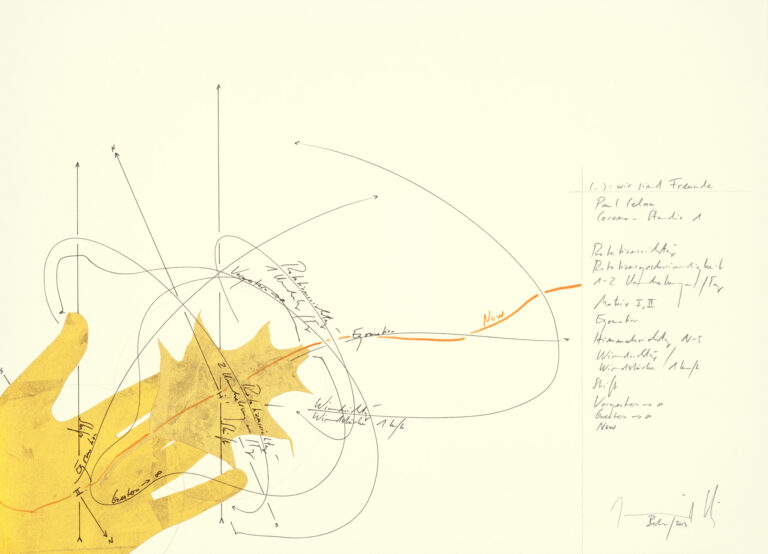 (...): wir sind Freunde
Paul Celan
Corona – Studie 1
Rotationsrichtung
Rotationsgeschwindigkeit
1-2 Umdrehungen/Tag
Matrix I, II
Egomotion
Himmelsrichtg N-S
Windrichtg/
Windstärke 1 km/h
Shift
Vorgestern → ∞
Gestern → ∞
Now
Now
Egomotion
Rotationsrichtung
1 Umdrehg/Tag
Vorgestern → ∞
Windrichtg
Windstärke 1 km/h
Rotationsrichtg
2 Umdrehg/Tag
Egomotion
Gestern → ∞
II
N
Berlin/2013